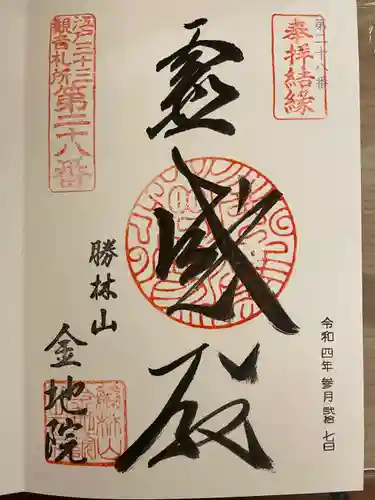 第二十八番
奉拝結縁
令和四年参月弐拾七日
霊感殿
勝林山
金地院
江戸三十三
観音札所
第二十八番